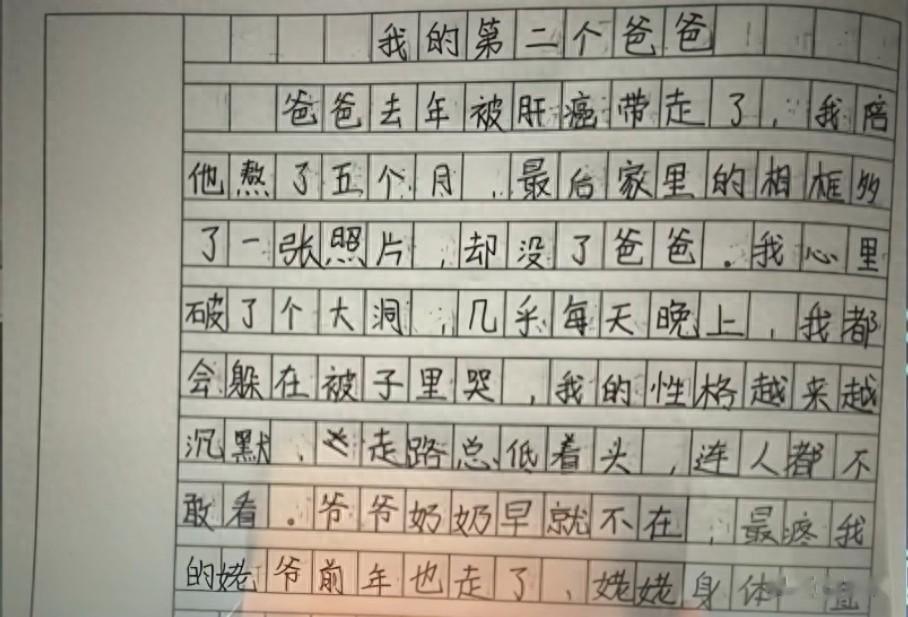 我的第二个爸爸
爸爸去年被肝癌带走了，我陪
他熬了五个月，最后家里的相框多
了一张照片，却没了爸爸。我心里
破了个大洞，几乎每天晚上，我都
会躲在被子里哭，我的性格越来越
沉默、走路总低着头，连人都不
敢看。爷爷奶奶早就不在，最疼我
的姥爷前年也走了，姥姥身体